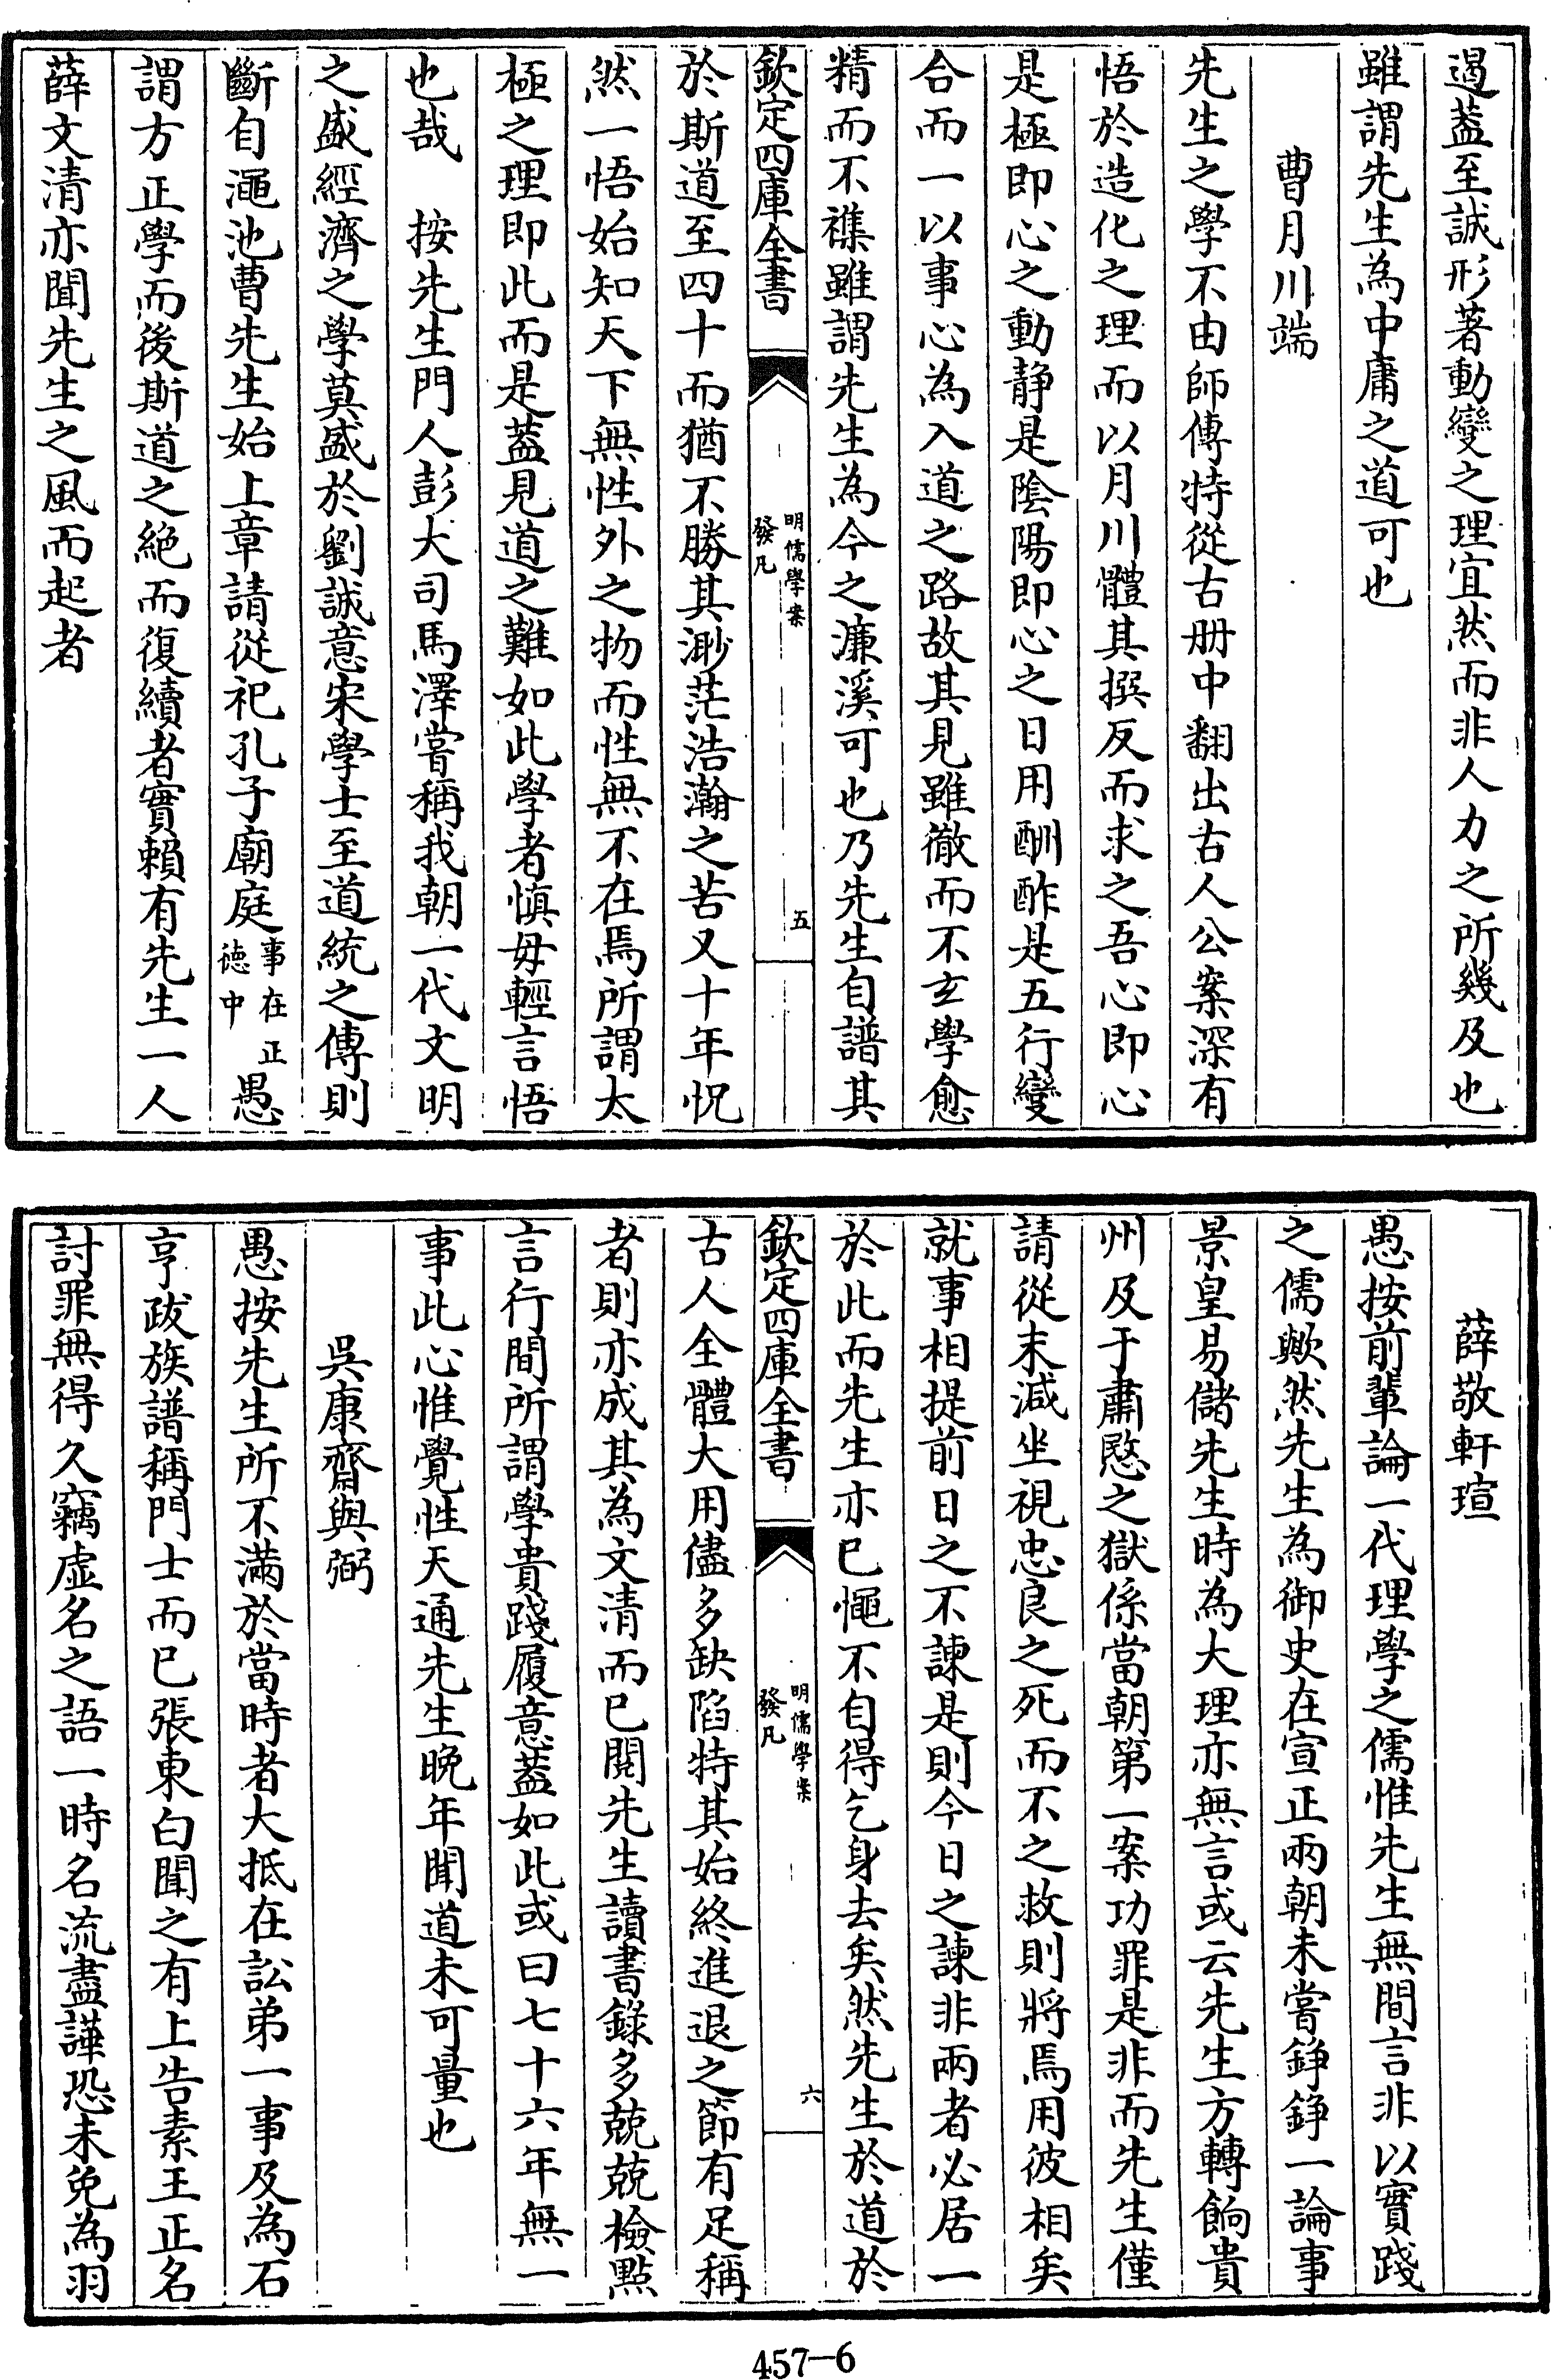 遏葢至誠形著動變之理宜然而非人力之所幾及也
雖謂先生為中庸之道可也
曹月川端
先生之學不由師傳特從古册中翻出古人公案深有
悟於造化之理而以月川體其撰反而求之吾心即心
是極即心之動静是陰陽即心之日用酬酢是五行變
合而一以事心為入道之路故其見雖徹而不玄學愈
精而不襍雖謂先生為今之濂溪可也乃先生自譜其
欽定四庫全書
明儒學案
發凡
五
於斯道至四十而猶不勝其渺茫浩瀚之苦又十年怳
然一悟始知天下無性外之物而性無不在焉所謂太
極之理即此而是葢見道之難如此學者慎毋輕言悟
也哉　按先生門人彭大司馬澤嘗稱我朝一代文明
之盛經濟之學莫盛於劉誠意宋學士至道統之傳則
斷自澠池曹先生始上章請從祀孔子廟庭事在正德中愚
謂方正學而後斯道之絶而復續者實賴有先生一人
薛文清亦聞先生之風而起者
薛敬軒瑄
愚按前輩論一代理學之儒惟先生無間言非以實踐
之儒歟然先生為御史在宣正兩朝未嘗錚錚一論事
景皇易儲先生時為大理亦無言或云先生方轉餉貴
州及于肅愍之獄係當朝第一案功罪是非而先生僅
請從末減坐視忠良之死而不之救則將焉用彼相矣
就事相提前日之不諫是則今日之諫非兩者必居一
於此而先生亦已愐不自得乞身去矣然先生於道於
欽定四庫全書
明儒學案
發凡
六
古人全體大用儘多缺陷特其始終進退之節有足稱
者則亦成其為文清而已閱先生讀書錄多兢兢檢㸃
言行間所謂學貴踐履意葢如此或曰七十六年無一
事此心惟覺性天通先生晚年聞道未可量也
吳康齋與弼
愚按先生所不滿於當時者大抵在訟弟一事及為石
亨䟦族譜稱門士而已張東白聞之有上告素王正名
討罪無得久竊虚名之語一時名流盡譁恐未免為羽
457-6